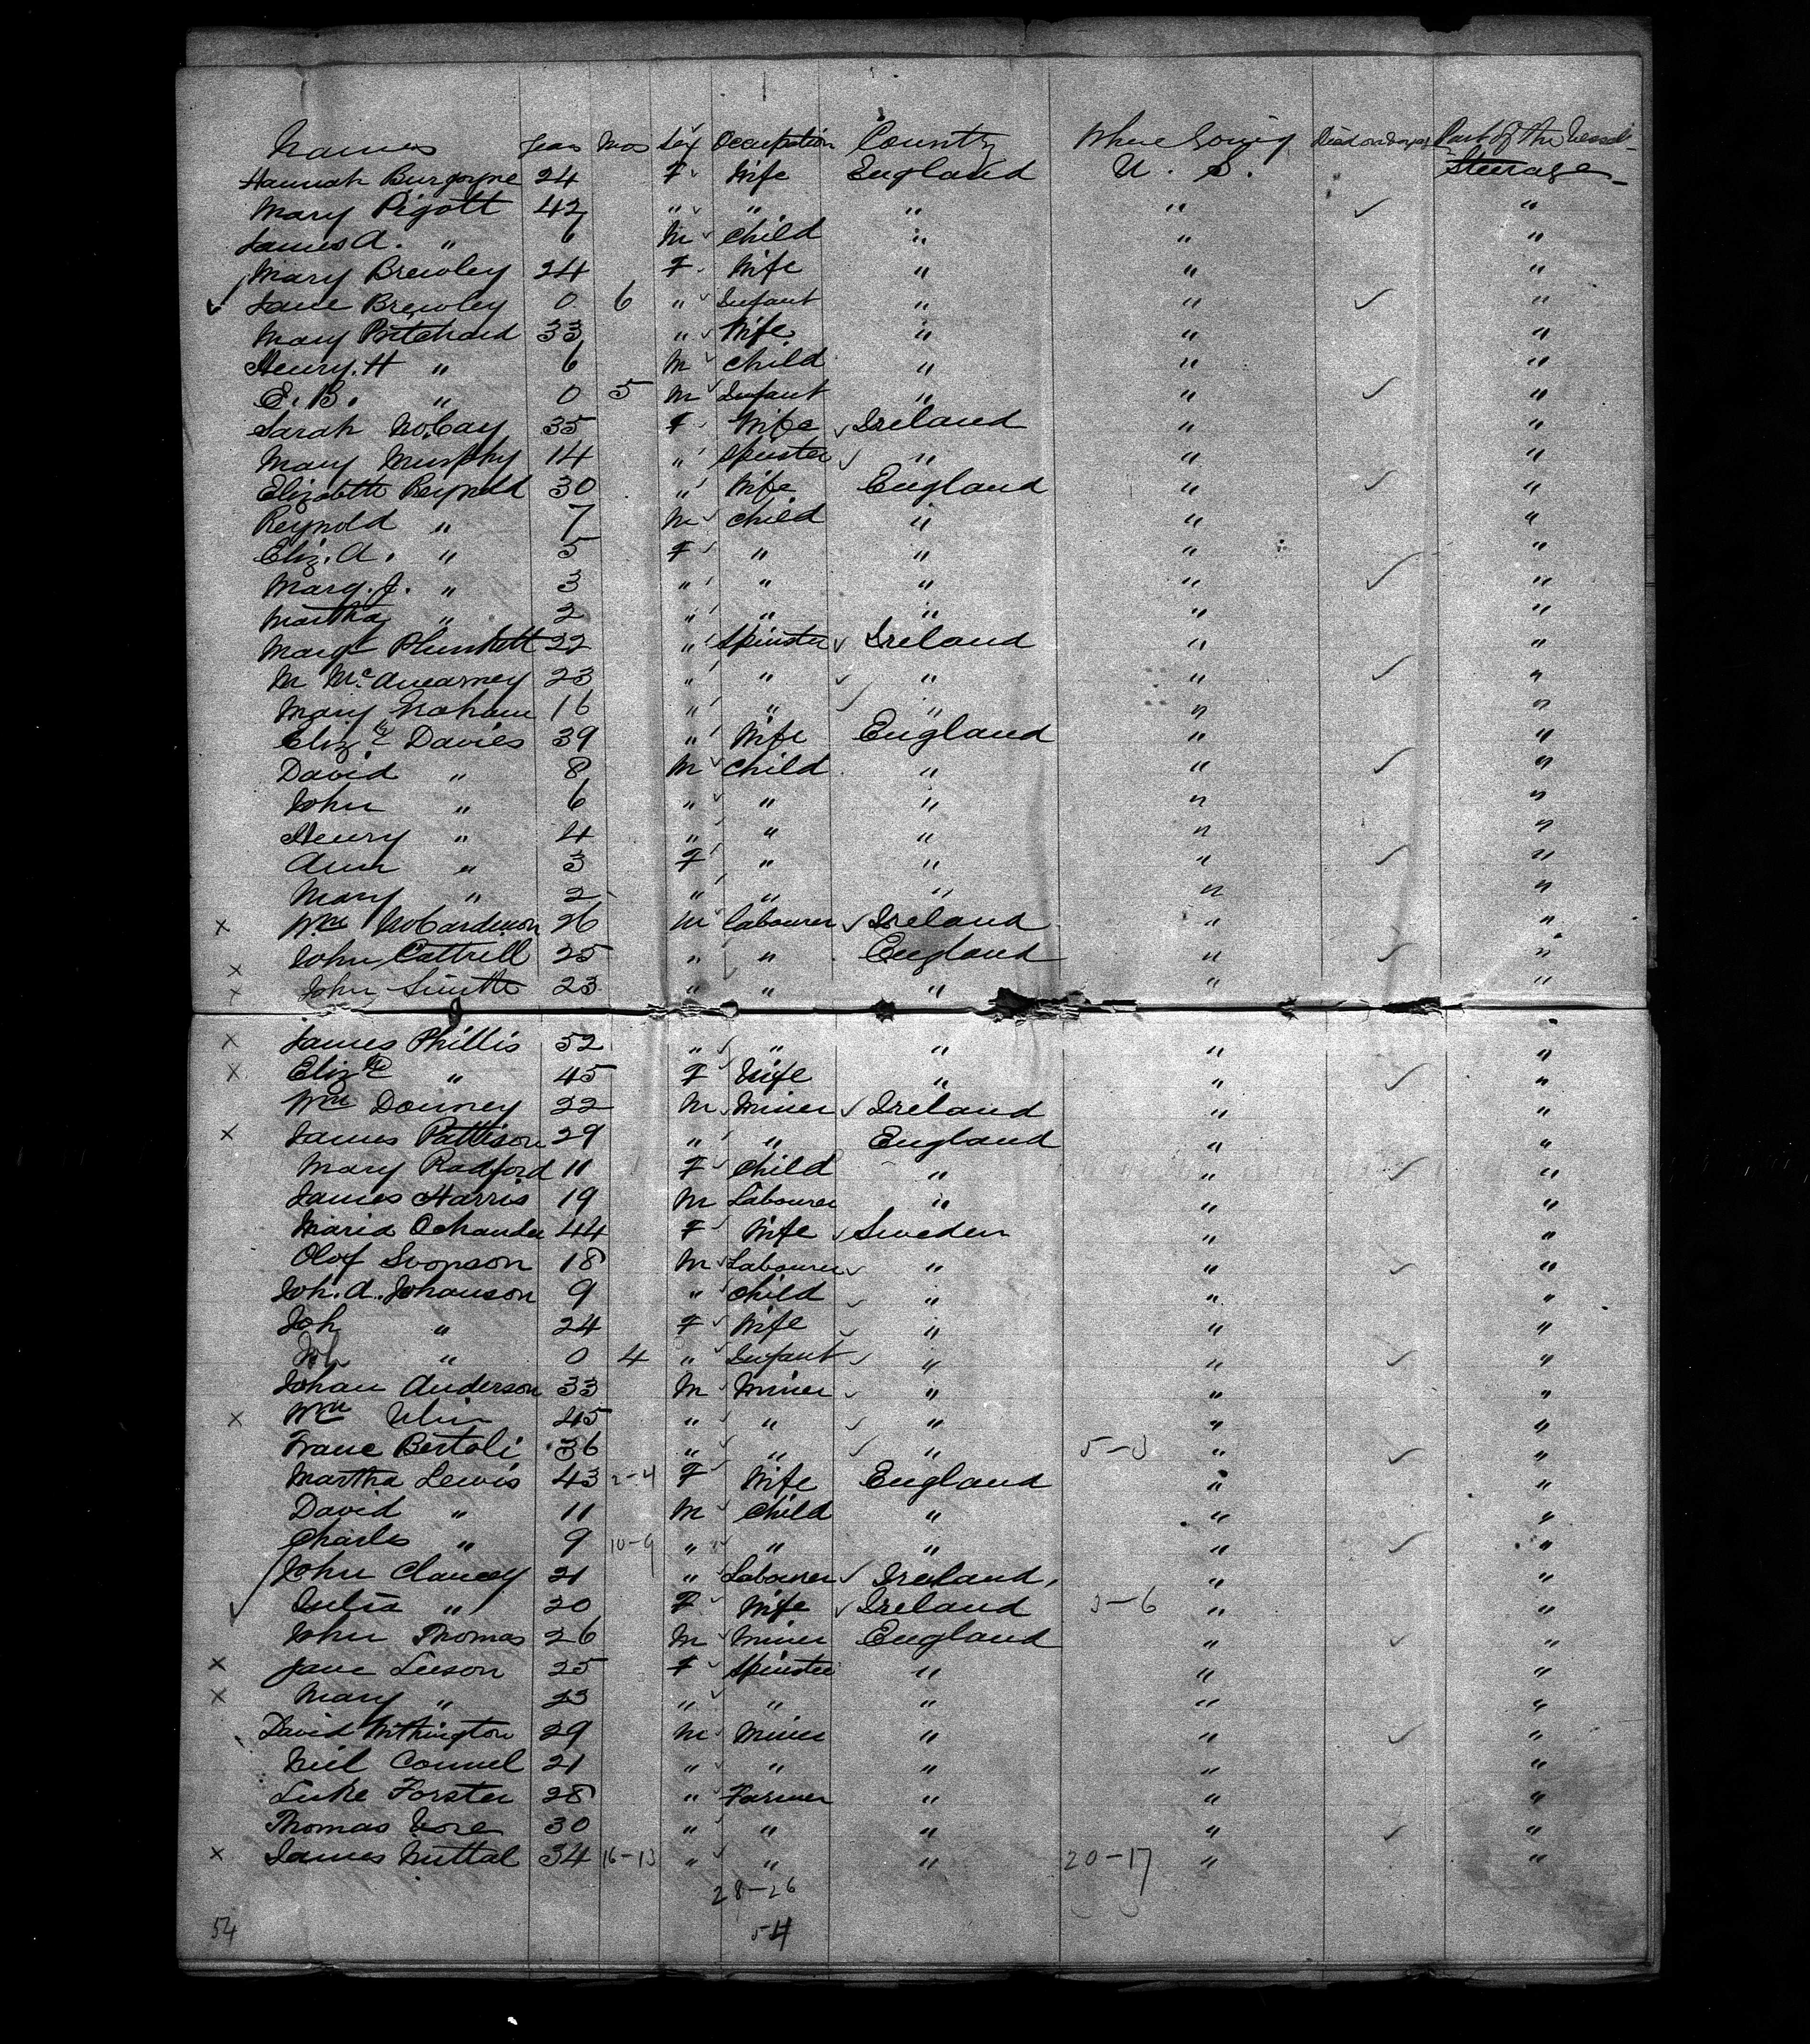 Names Years Mos Sex Occupation County Where Going Died on Voyage Part of the Vessel
Hannah Burgoyne 24 F Wife England U. S. Steerage
Mary Pigott 42 " " " " "
James A. " 6 M Child " " "
Mary Brewley 24 F Wife " " "
Jane Brewley 0 6 " Infant " " "
Mary Pritchard 33 " Wife " " "
Henry. H " 6 M Child " " "
E. B. " 0 5 M Infant " " "
Sarah McCay 35 F Wife Ireland " "
Mary Murphy 14 " Spinster " " "
Elizabeth Reynold 30 " Wife England " "
Reynold " 7 M child " " "
Eliz. A. " 5 F " " " "
Marg. J. " 3 " " " " "
Martha " 2 " " " " "
Margt Plunkett 22 " Spinster Ireland " "
M 23 " " " " "
Mary Graham 16 " " " " "
Elizth Davies 39 " Wife England " "
David " 8 M Child " " "
John " 6 " " " " "
Henry " 4 " " " " "
Ann " 3 F " " " "
Mary " 2 " " " " "
Wm 26 M Labourer Ireland " "
John Cottrell 25 " " England " "
John Smith 23 " " " " "
James Phillis 52 " " " " "
Elizth " 45 F Wife " " "
Wm Downey 22 M Miner Ireland " "
James Pattison 29 " " England " "
Mary Radford 11 F Child " " "
James Harris 19 M Labourer " " "
Maria 44 F Wife Sweden " "
Olof Svonson 18 M Labourer " " "
Joh. A. Johanson 9 " Child " " "
Joh " 24 F Wife " " "
Joh " 0 4 " Infant " " "
Johan Anderson 33 M Miner " " "
Wm 45 " " " " "
Franc Bertoli 36 " " " 5-3 " "
Martha Lewis 43 2-4 F Wife England " "
David " 11 M Child " " "
Charles " 9 10-9 " " " " "
John Clancy 21 " Labourer Ireland, " "
Julia " 20 F Wife Ireland 3-6 " "
John Thomas 26 M Miner England " "
Jane Leeson 25 F Spinster " " "
Mary " 23 " " " " "
David Withington 29 M Miner " " "
Neil Connel 21 " " " " "
Luke Forster 28 " Farmer " " "
Thomas 30 " " " " "
James Nuttal 34 16-13 " " " 20-17 " "
28-26
54 54